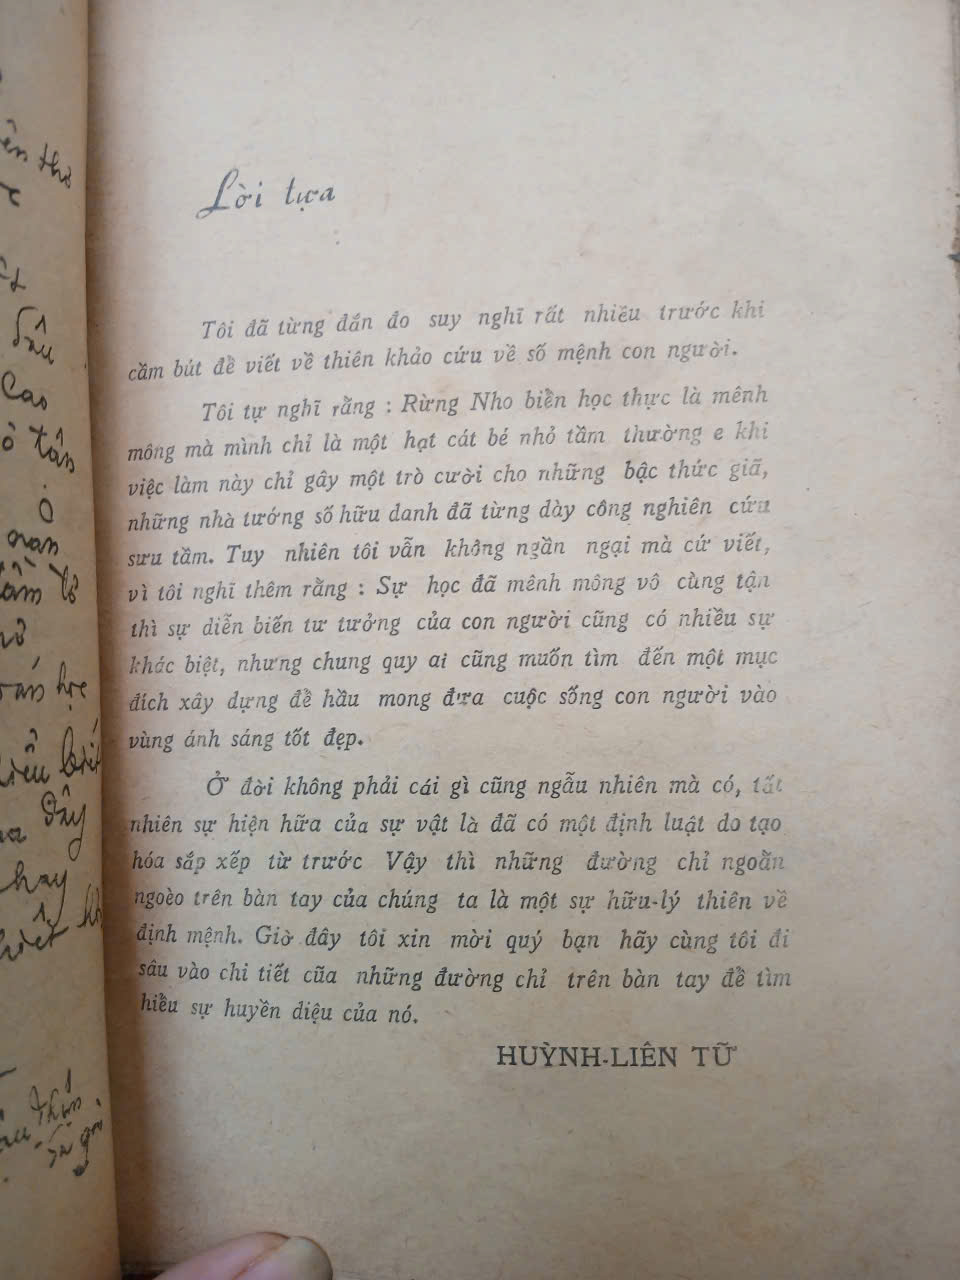 Lời tựa
Tôi đã từng đắn đo suy nghĩ rất nhiều trước khi
cầm bút để viết về thiên khảo cứu về số mệnh con người.
Tôi tự nghĩ rằng : Rừng Nho biển học thực là mênh
mông mà mình chỉ là một hạt cát bé nhỏ tầm thường e khi
việc làm này chỉ gây một trò cười cho những bậc thức giã,
những nhà tướng số hữu danh đã từng dày công nghiên cứu
sưu tầm. Tuy nhiên tôi vẫn không ngần ngại mà cứ viết,
vì tôi nghĩ thêm rằng : Sự học đã mênh mông vô cùng tận
thì sự diễn biến tư tưởng của con người cũng có nhiều sự
khác biệt, nhưng chung quy ai cũng muốn tìm đến một mục
đích xây dựng để hầu mong đưa cuộc sống con người vào
vùng ánh sáng tốt đẹp.
Ở đời không phải cái gì cũng ngẫu nhiên mà có, tất
nhiên sự hiện hữa của sự vật là đã có một định luật do tạo
hóa sắp xếp từ trước Vậy thì những đường chỉ ngoằn
ngoèo trên bàn tay của chúng ta là một sự hữu-lý thiên về
định mệnh. Giờ đây tôi xin mời quý bạn hãy cùng tôi đi
sâu vào chi tiết cũa những đường chỉ trên bàn tay để tìm
hiểu sự huyền diệu của nó.
HUỲNH-LIÊN TỮ
thơ
Dâu
Cao
tân
học
Đây
hay